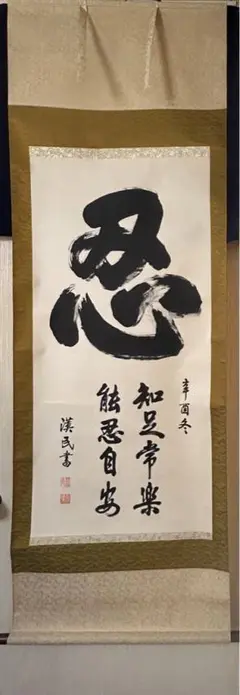 忍
辛酉冬
知足常樂
能忍自安
漢民書